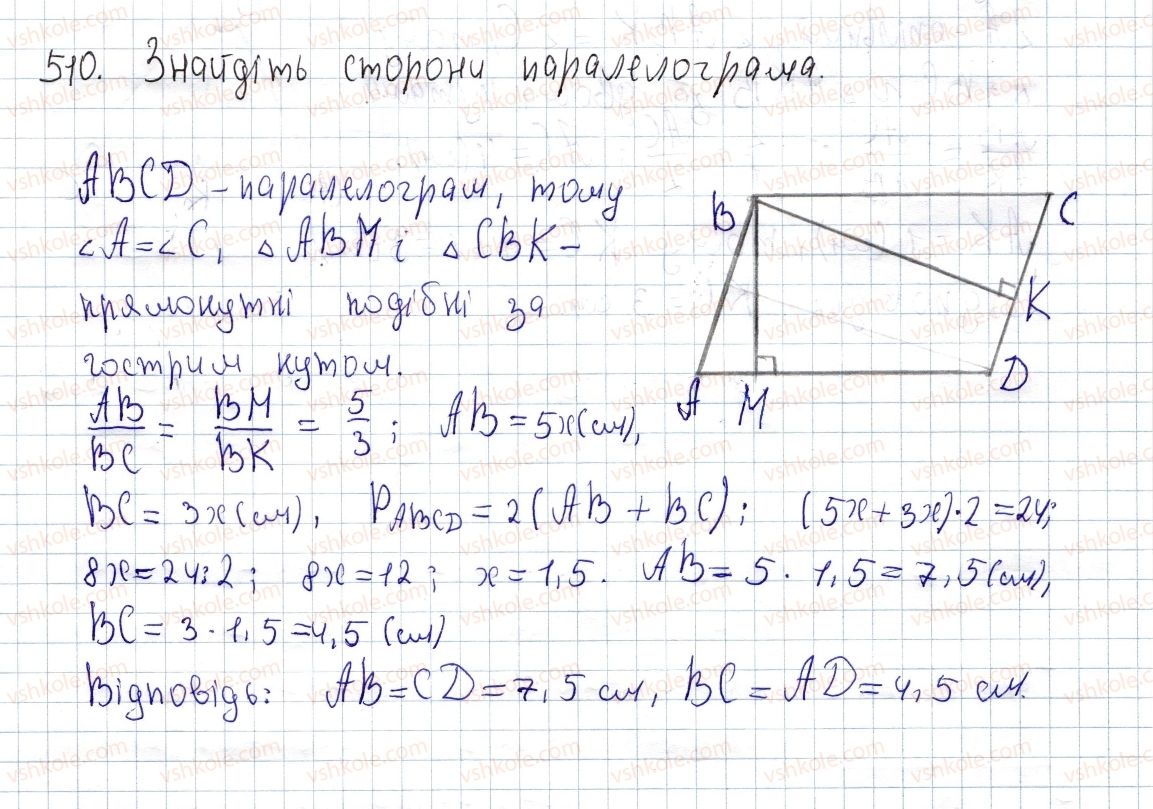 510. Знайдіть сторони паралелограма.
ABCD - паралелограм, тому
∠A=∠C, △ABM і △CBK -
прямокутні подібні за
гострим кутом.
AB/BC = BM/BK = 5/3; AB = 5x(см),
BC = 3x(см), P_ABCD = 2(AB + BC); (5x+3x)·2=24;
8x=24:2; 8x=12; x=1,5. AB = 5·1,5=7,5(см),
BC = 3·1,5=4,5 (см)
Відповідь: AB=CD=7,5 см, BC = AD=4,5 см.
B
C
K
A
M
D
vshkole.com